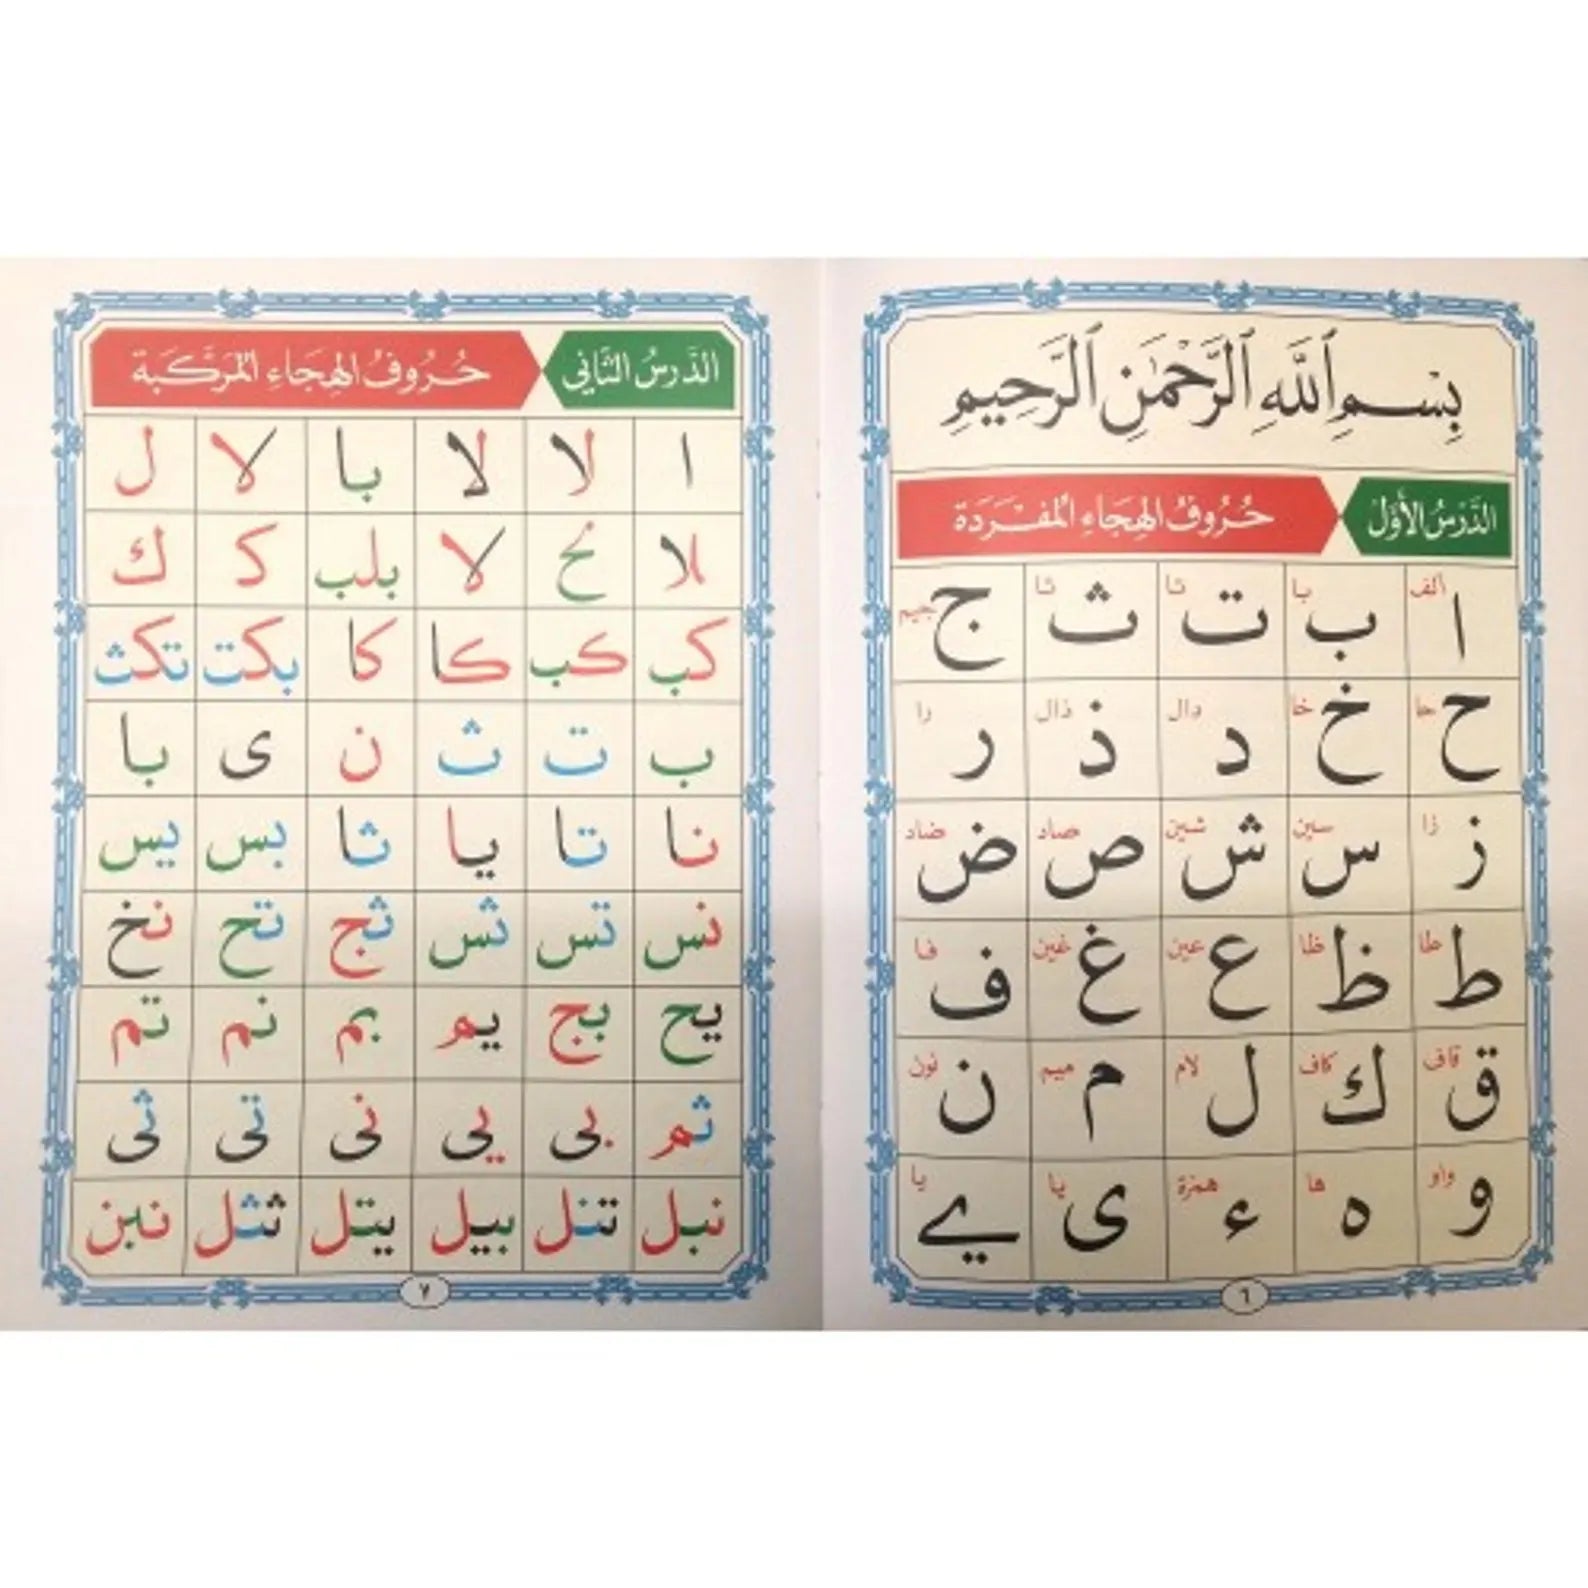 بِسْمِ ٱللَّهِ ٱلرَّحْمَٰنِ ٱلرَّحِيمِ
الدَّرْسُ الأَوَّلُ حُرُوفُ الهِجَاءِ المُفْرَدَة
ا الف ب با ت تا ث ثا ج جيم
ح حا خ خا د دال ذ ذال ر را
ز زا س سين ش شين ص صاد ض ضاد
ط طا ظ ظا ع عين غ غين ف فا
ق قاف ك كاف ل لام م ميم ن نون
و واو ه ها ء همزة ى يا ے يا
٦
الدَّرسُ الثَّاني حُرُوفُ الهِجَاءِ المُرَكَّبَة
ا لا لا با لا ل
لا لا بلب كـ ك
كب كب كا كا بكت تكث
ب ت ث ن ى با
نا تا يا ثا بس يس
نس تس ثس ثج تح نخ
يح بج يم بم نم تم
ثم بى يى نى تى ثى
نبل تنل بيل يتل ثثل نبن
٧